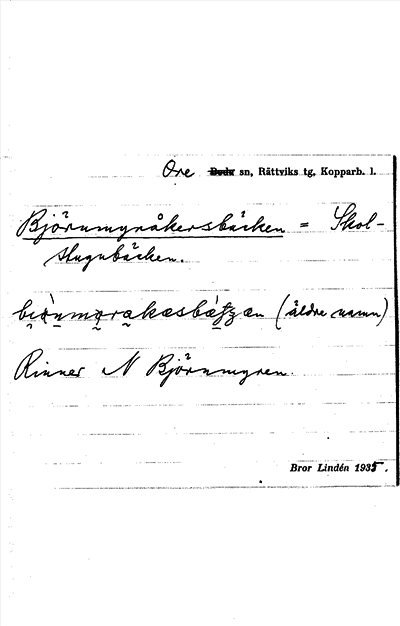 Ore sn, Rättviks tg, Kopparb. l.
Björnmyråkersbäcken = Skol-
stugubäcken.
(äldre namn)
Rinner N Björnmyren.
Bror Lindén 1935.